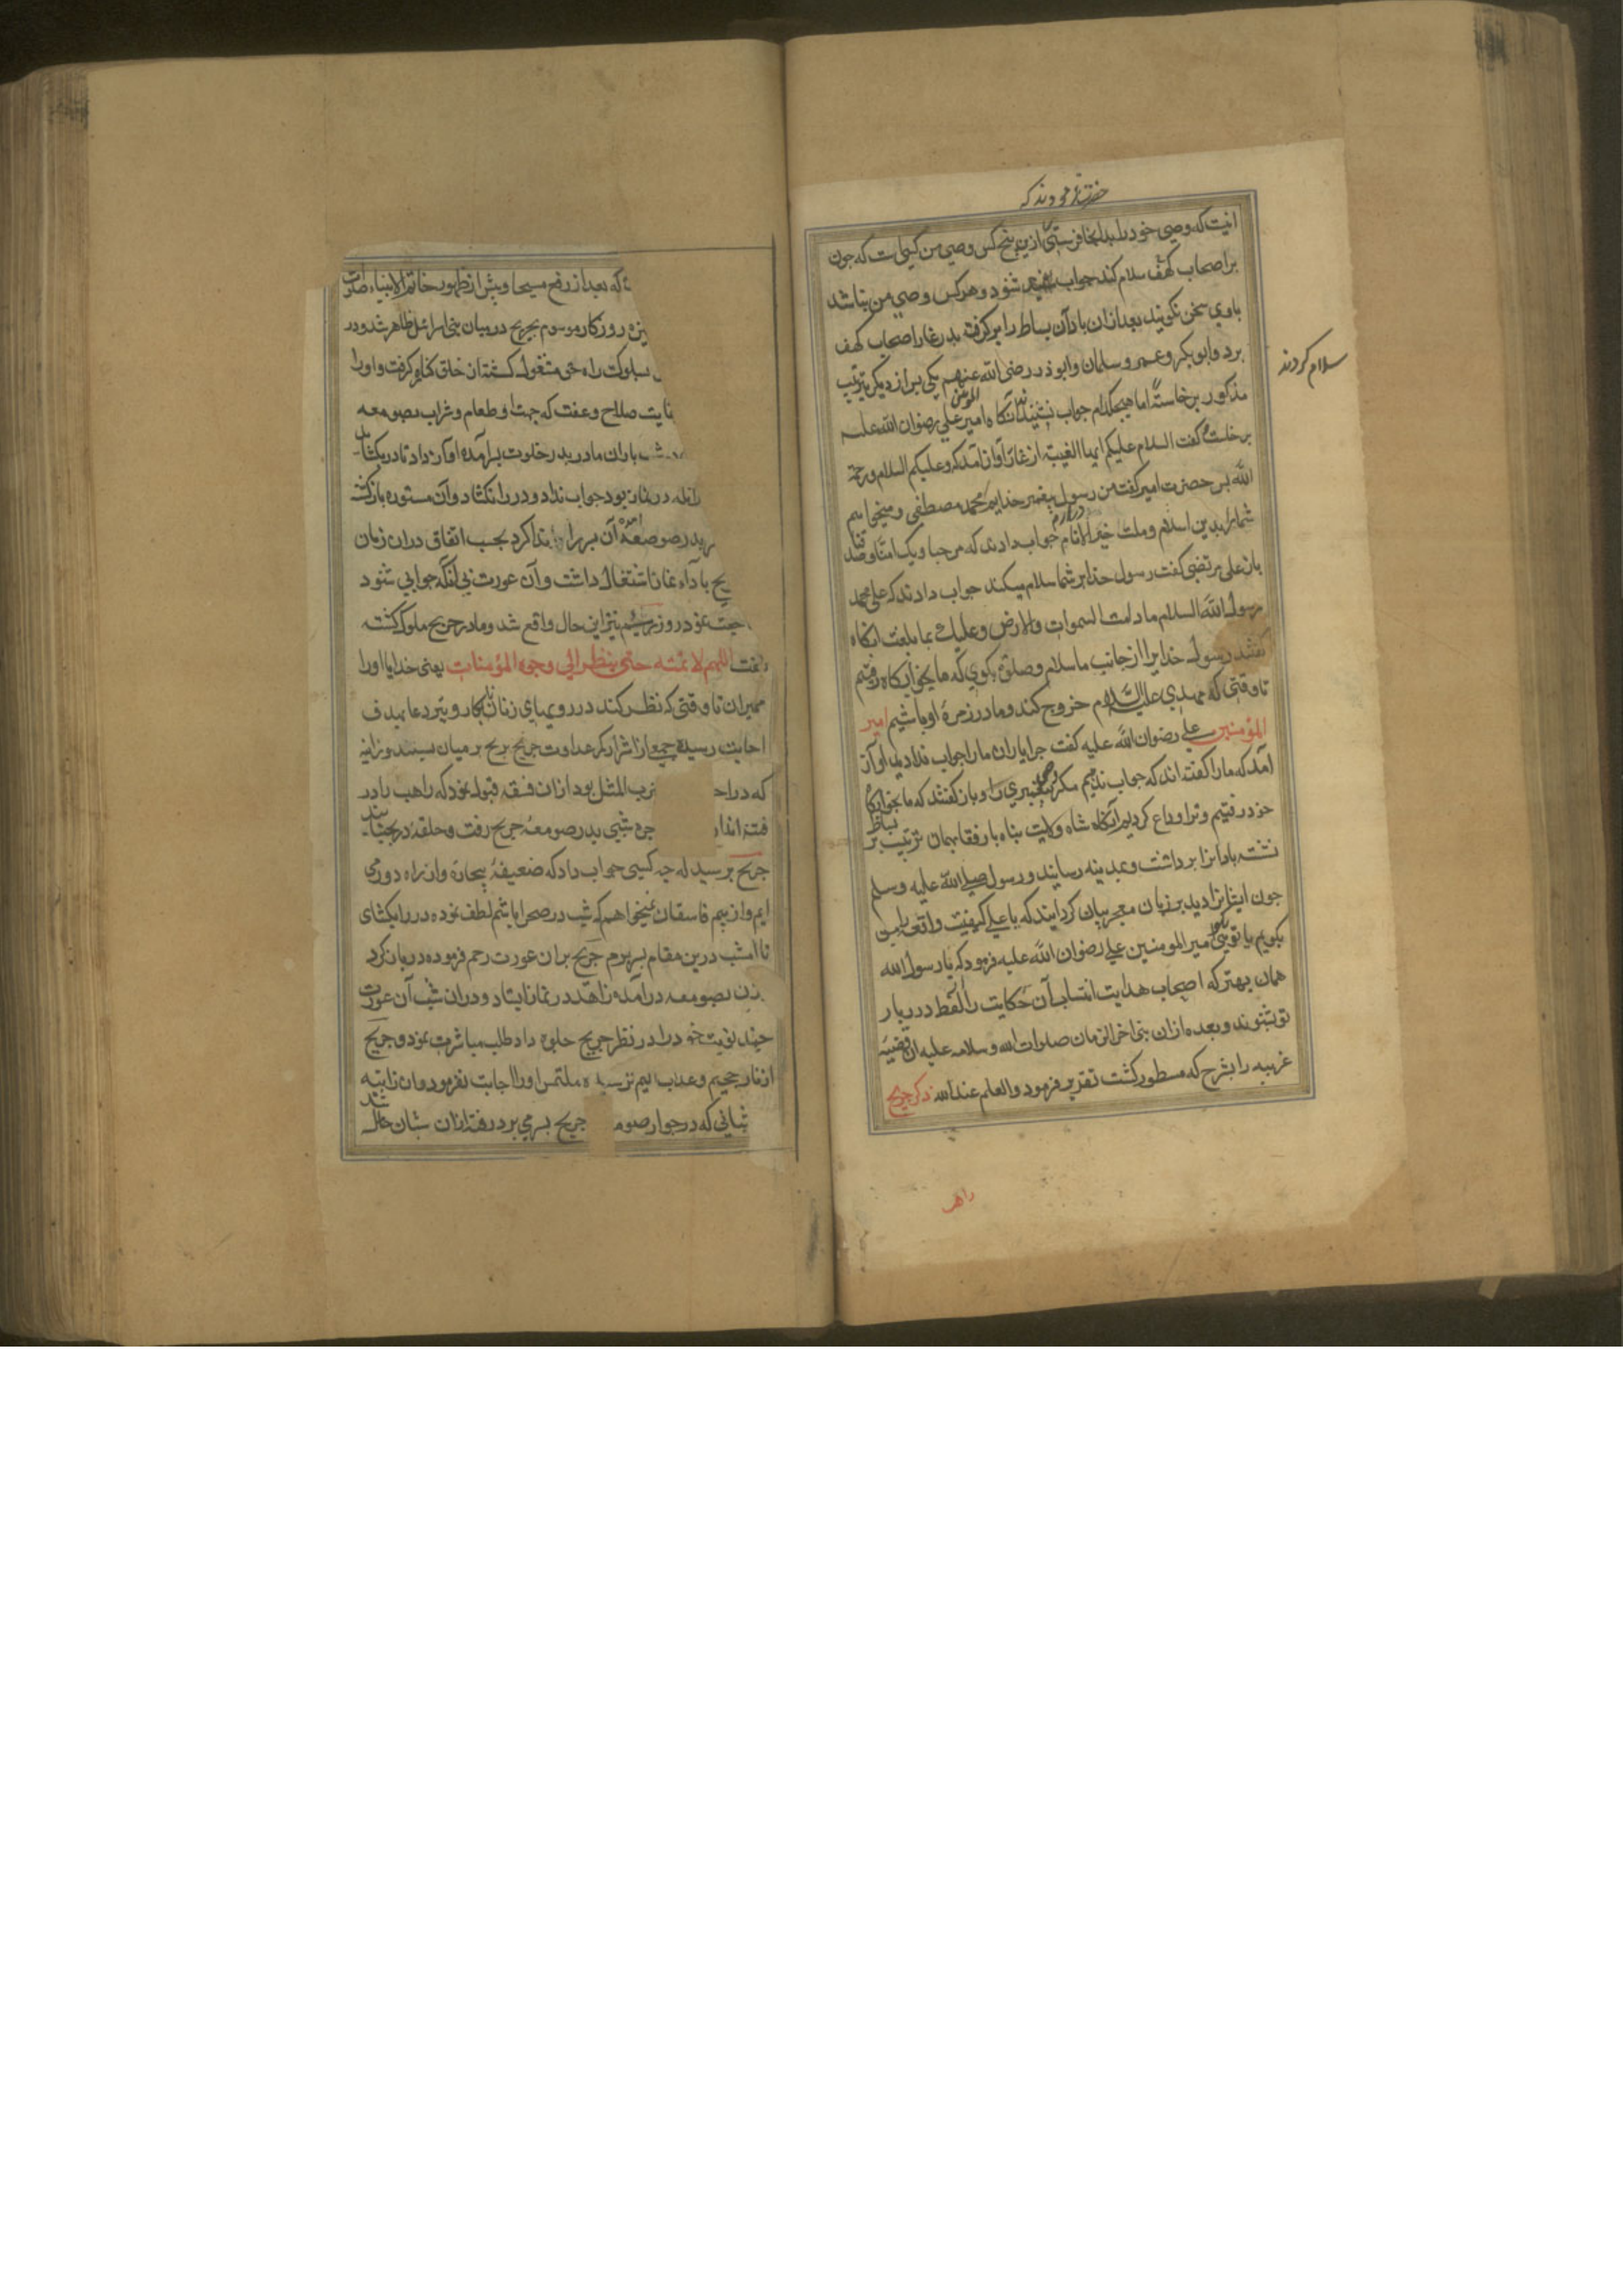 حضرت فرمودند که
انیست که وصی خود را بدانجا فرستی ازین پنج کس وصی من کیست که چون
بر اصحاب کهف سلام کند جواب شنود و هرکس وصی من نباشد
باوی سخن نکویند بعد ازان باد آن بساط را برکرفت بدر غار اصحاب کهف
برد و ابو بکر و عمر و سلمان و ابوذر رضی الله عنهم یکی پس از دیکر بترتیب
سلام کردند
مذکور برخاسته اما هیچکدام جواب نشنیدند آنکاه امیر المؤمنین علی رضوان الله علیه
برخاست کفت السلام علیکم ایها الفتیة از غار آواز آمد که وعلیکم السلام ورحمة
الله پس حضرت امیر کفت من رسول پیغمبر خدایم محمد مصطفی و میخواهم
شما را بدین اسلام و ملت خیر الانام درآرم جواب دادند که مرحبا ویک امنا وصدقنا
باز علی مرتضی کفت رسول خدا بر شما سلام میکند جواب دادند که علی محمد
رسول الله السلام مادامت السموات والارض وعلیک بما بلغت انکاه
کفتند رسول خدایرا از جانب ما سلام و صلوة بکوی که ما بخوابکاه رفتیم
تا وقتی که مهدی علیه السلام خروج کند و ما در زمرۀ او باشیم امیر
المؤمنین علی رضوان الله علیه کفت چرا یاران ما را جواب ندادید آواز
آمد که ما را کفته اند که جواب ندهیم مکر پیغمبری را و باز کفتند که ما بخوابکاه
خود رفتیم و ترا وداع کردیم آنکاه شاه ولایت پناه با رفقا بهمان ترتیب بر بساط
نشسته باد انرا برداشت و بمدینه رسانید و رسول صلی الله علیه وسلم
چون ایشانرا دید بر زبان معجز بیان کردانید که یا علی کیفیت واقعه را من
بکویم یا تو میکوئی امیر المومنین علی رضوان الله علیه فرمود که یا رسول الله
همان بهتر که اصحاب هدایت انتساب آن حکایت را از لفظ درر بار
تو شنوند و بعده ازان نبی اخر الزمان صلوات الله وسلامه علیه ان قضیۀ
غریبه را بشرح که مسطور کشت تقریر فرمود والعلم عند الله ذکر جریح
راهب
که بعد از رفع مسیحا و پیش از ظهور خاتم الانبیا صلوات
روزکار موسوم بجریح در میان بنی اسرائیل ظاهر شد و در
بسلوک راه حق مشغول کشته از خلق کناره کرفت و او را
صلاح و عفت که جهت او طعام و شراب بصومعه
باران مادر بدر خلوت پسر آمده آواز داد تا در بکشاید
در نماز بود جواب نداد و در را نکشاد و آن مستوره بازکشته
بدر صومعه آمده آن پسر را ندا کرد بحسب اتفاق دران زمان
باداء نماز اشتغال داشت و آن عورت بی انکه جوابی شنود
نمود روز سیم نیز این حال واقع شد و مادر جریح ملول کشته
کفت اللهم لا تمته حتی ینظر الی وجوه المؤمسات یعنی خدایا او را
ممیران تا وقتی که نظر کند در رویهای زنان نابکار و تیر دعا بهدف
اجابت رسیده جمعی از اشرار کمر عداوت جریح بر میان بستند و زانیه
که در ضرب المثل بود ازان فسقه قبول نمود که راهب را در
فتنه اندازد شبی بدر صومعۀ جریح رفت و حلقه در بجنباند
جریح پرسید که چه کسی جواب داد که ضعیفۀ بیچاره و از راه دوری
ایم و از بیم فاسقان نمیخواهم که شب در صحرا باشم لطف نموده در را بکشای
تا امشب درین مقام بسر برم جریح بران عورت رحم فرموده در باز کرد
زن بصومعه درآمده زاهد در نماز ایستاد و دران شب آن عورت
چند نوبت خود را در نظر جریح جلوه داد طلب مباشرت نمود و جریح
از نار جحیم و عذاب الیم ترسیده ملتمس او را اجابت نفرمود و ان زانیه
شبانی که در جوار صومعه جریح بسر می برد رفته ازان شبان حامله شد